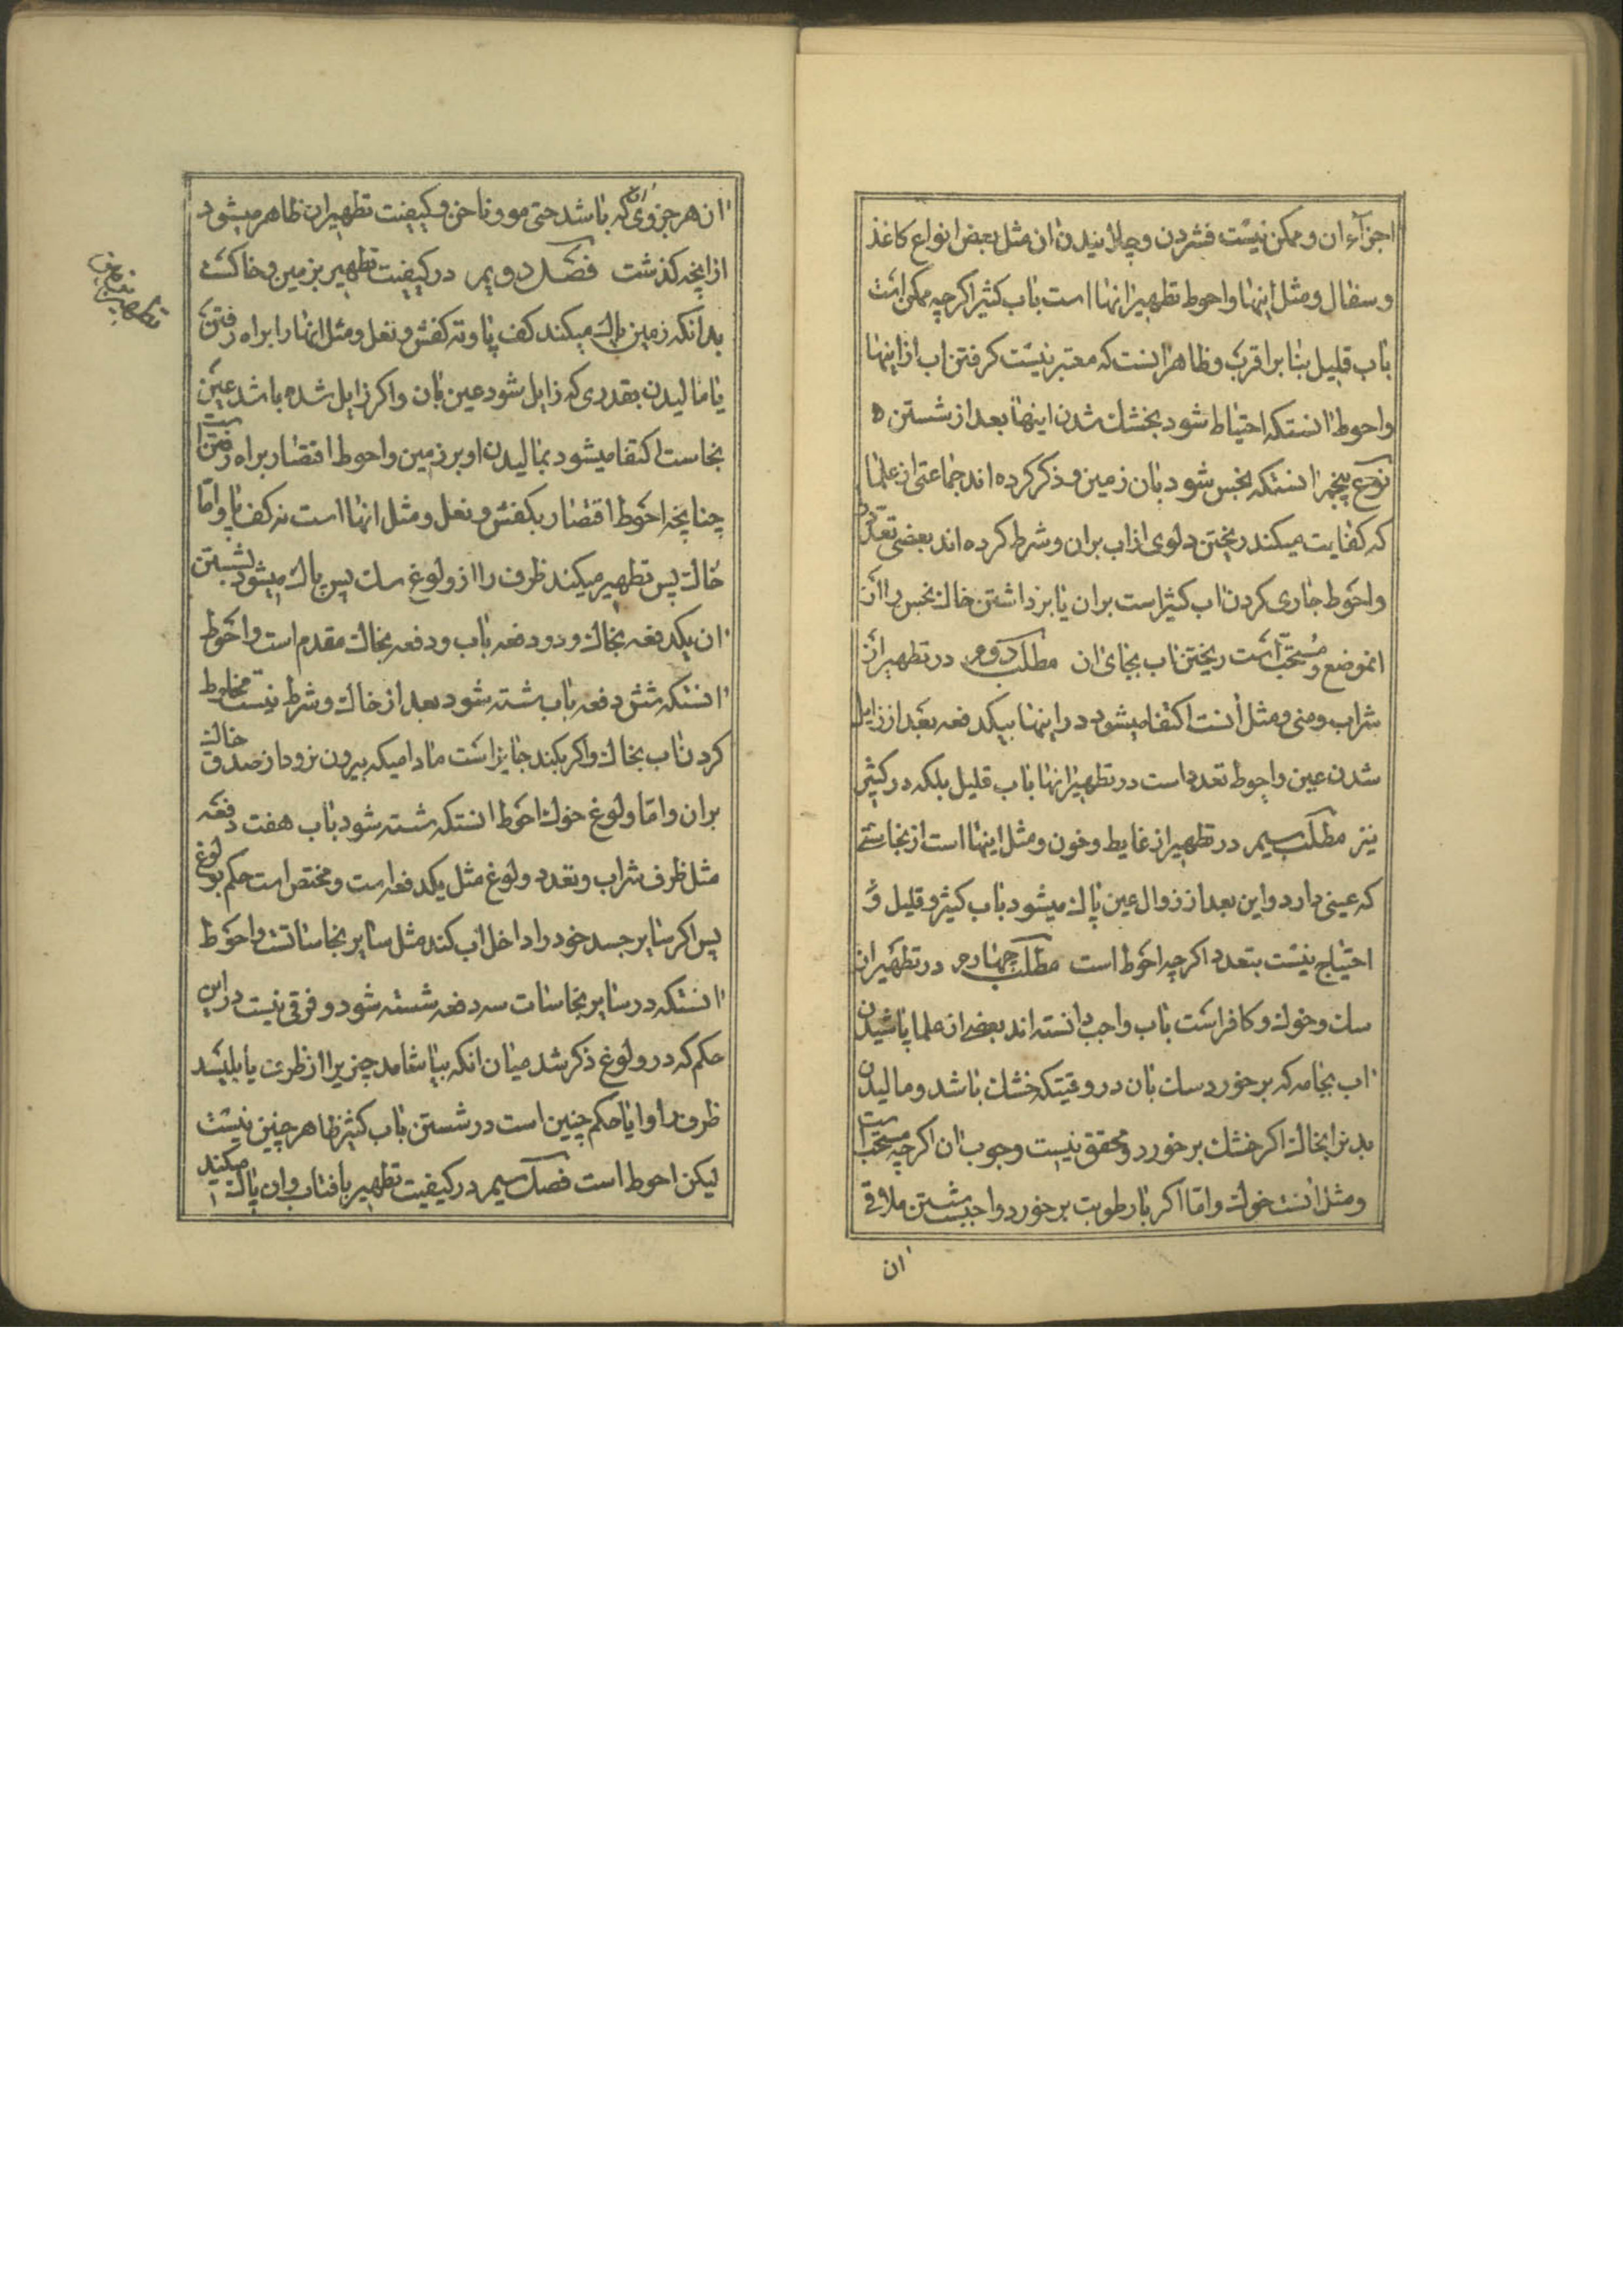 اجزآء ان و ممکن نیست فشردن و چلانیدن ان مثل بعض انواع کاغذ
و سفال و مثل اینها و احوط تطهیر انها است باب کثیر اکرچه ممکن است
باب قلیل بنا بر اقرب و ظاهر انست که معتبر نیست کرفتن اب از اینها
و احوط انستکه احتیاط شود بخشك شدن اینها بعد از شستن ه
نوع پنجم انستکه نجس شود بان زمین و ذکر کرده اند جماعتی از علما
که کفایت میکند ریختن دلوی از اب بران و شرط کرده اند بعضی
و احوط جاری کردن اب کثیر است بران یا برداشتن خاك نجس را از
انموضع و مستحب است ریختن اب بجای ان مطلب دوم در تطهیر از
شراب و منی و مثل انست اکتفا میشود در اینها بیکدفعه بعد از زایل
شدن عین و احوط تعدد است در تطهیر انها باب قلیل بلکه در کثیر
نیز مطلب سیم در تطهیر از غایط و خون و مثل اینها است از نجاستی
که عینی دارد و این بعد از زوال عین پاك میشود باب کثیر و قلیل و
احتیاج نیست بتعدد اکرچه احوط است مطلب چهارم در تطهیر از
سك و خوك و کافر است باب واجب دانسته اند بعضی از علما پاشیدن
اب بجامه که بر خورد سك بان در وقتیکه خشك باشد و مالیدن
بدنرا بخاك اکر خشك بر خورد و محقق نیست وجوب ان اکرچه مستحب است
و مثل انست خوك و امّا اکر بارطوبت بر خورد واجب است شستن ملاقی
ان
ان هر جزوی که باشد حتی مو و ناخن و کیفیت تطهیر ان ظاهر میشود
از انچه کذشت فصل دویم در کیفیت تطهیر بزمین و خاکست
بدانکه زمین پاك میکند کف پا و ته کفش و نعل و مثل انها را براه رفتن
یا مالیدن بقدری که زایل شود عین بان و اکر زایل شده باشد عین
نجاست اکتفا میشود بمالیدن او بر زمین و احوط اقتصار براه رفتن است
چنانچه احوط اقتصار بکفش و نعل و مثل انها است نه کف پا و امّا
خاك پس تطهیر میکند ظرف را از ولوغ سك پس پاك میشود بشستن
ان یکدفعه بخاك و دو دفعه باب و دفعه بخاك مقدم است و احوط
انستکه شش دفعه باب شسته شود بعد از خاك و شرط نیست مخلوط
کردن اب بخاك و اکر بکند جایز است مادامیکه بیرون نرود از صدق خاك
بران و امّا ولوغ خوك احوط انستکه شسته شود باب هفت دفعه
مثل ظرف شراب و تعدد ولوغ مثل یکدفعه است و مختص است حکم بولوغ
پس اکر سایر جسد خود را داخل اب کند مثل سایر نجاساتست و احوط
انستکه در سایر نجاسات سه دفعه شسته شود و فرقی نیست در این
حکم که در ولوغ ذکر شد میان انکه بیاشامد چیزیرا از ظرف یا بلیسد
ظرف را و ایا حکم چنین است در شستن باب کثیر ظاهر چنین نیست
لیکن احوط است فصل سیم در کیفیت تطهیر بافتاب و ان پاك میکند